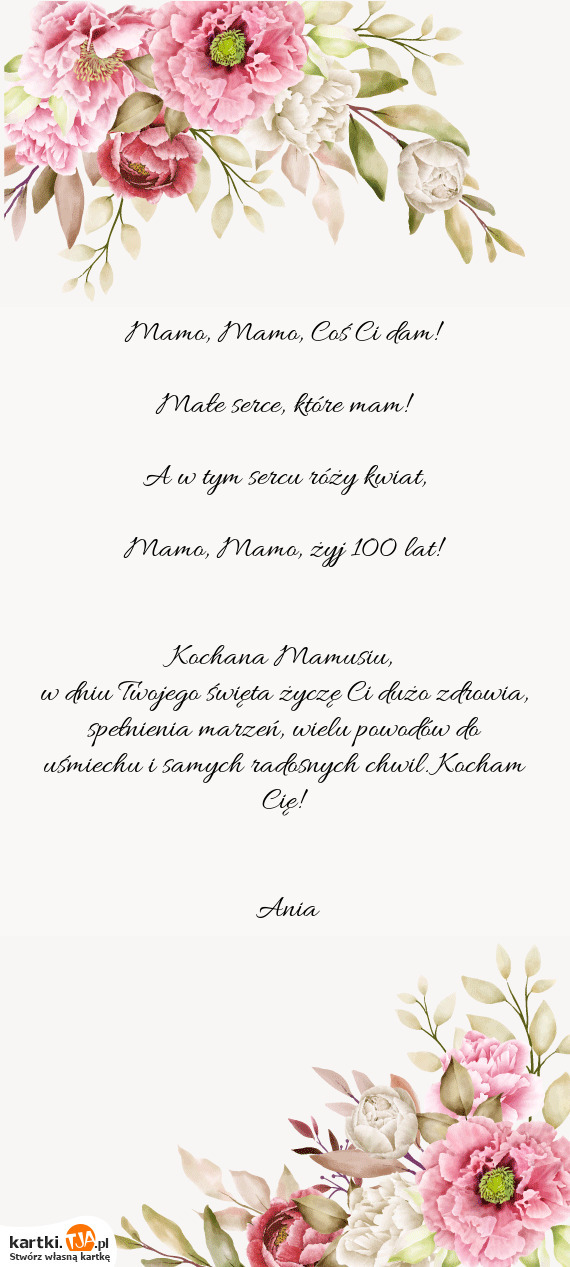 Mamo, Mamo, Coś Ci dam!
Małe serce, które mam!
A w tym sercu róży kwiat,
Mamo, Mamo, żyj 100 lat!
Kochana Mamusiu,
w dniu Twojego święta życzę Ci dużo zdrowia,
spełnienia marzeń, wielu powodów do
uśmiechu i samych radosnych chwil. Kocham
Cię!
Ania
kartki.TJA.pl
Stwórz własną kartkę